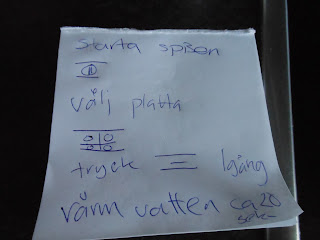 starta spisen
välj platta
tryck 1gång
värm vatten ca 20